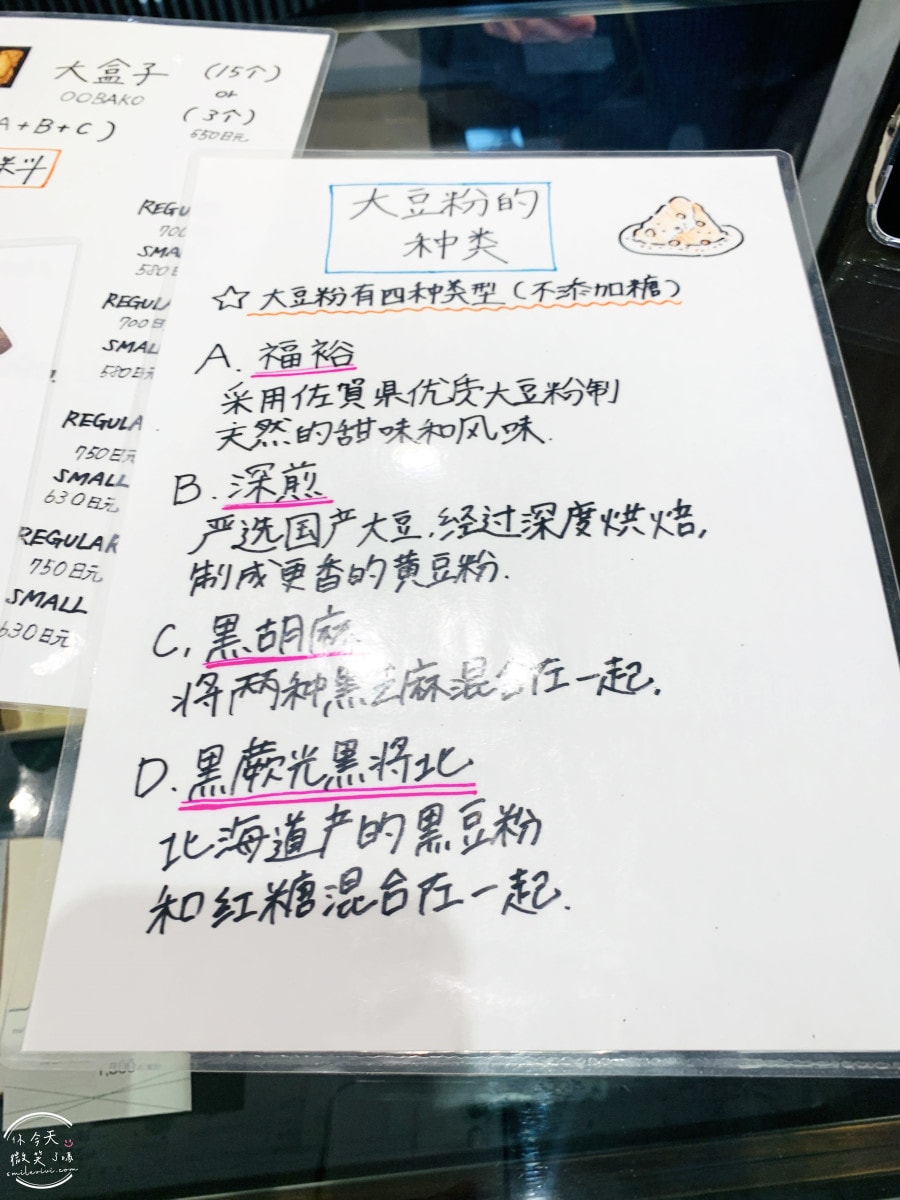 大盒子 (15个)
OOBAKO or
A+B+C) (3个)
650日元
REGU
700
SMA
580日
REGULA
700日
SMAL
580日元
REGULA
750日元
SMALL
630日元
REGULAR
750日元
SMALL
630日元
大豆粉的
种类
☆ 大豆粉有四种类型(不添加糖)
A. 福裕
采用佐賀県优质大豆粉制
天然的甜味和风味.
B. 深煎
严选国产大豆,经过深度烘焙,
制成更香的黄豆粉.
C, 黒胡麻
将两种黑芝麻混合在一起.
D. 黒蕨光黒将北
北海道产的黒豆粉
和红糖混合在一起.
你今天
微笑了嗎
smilevivi.com